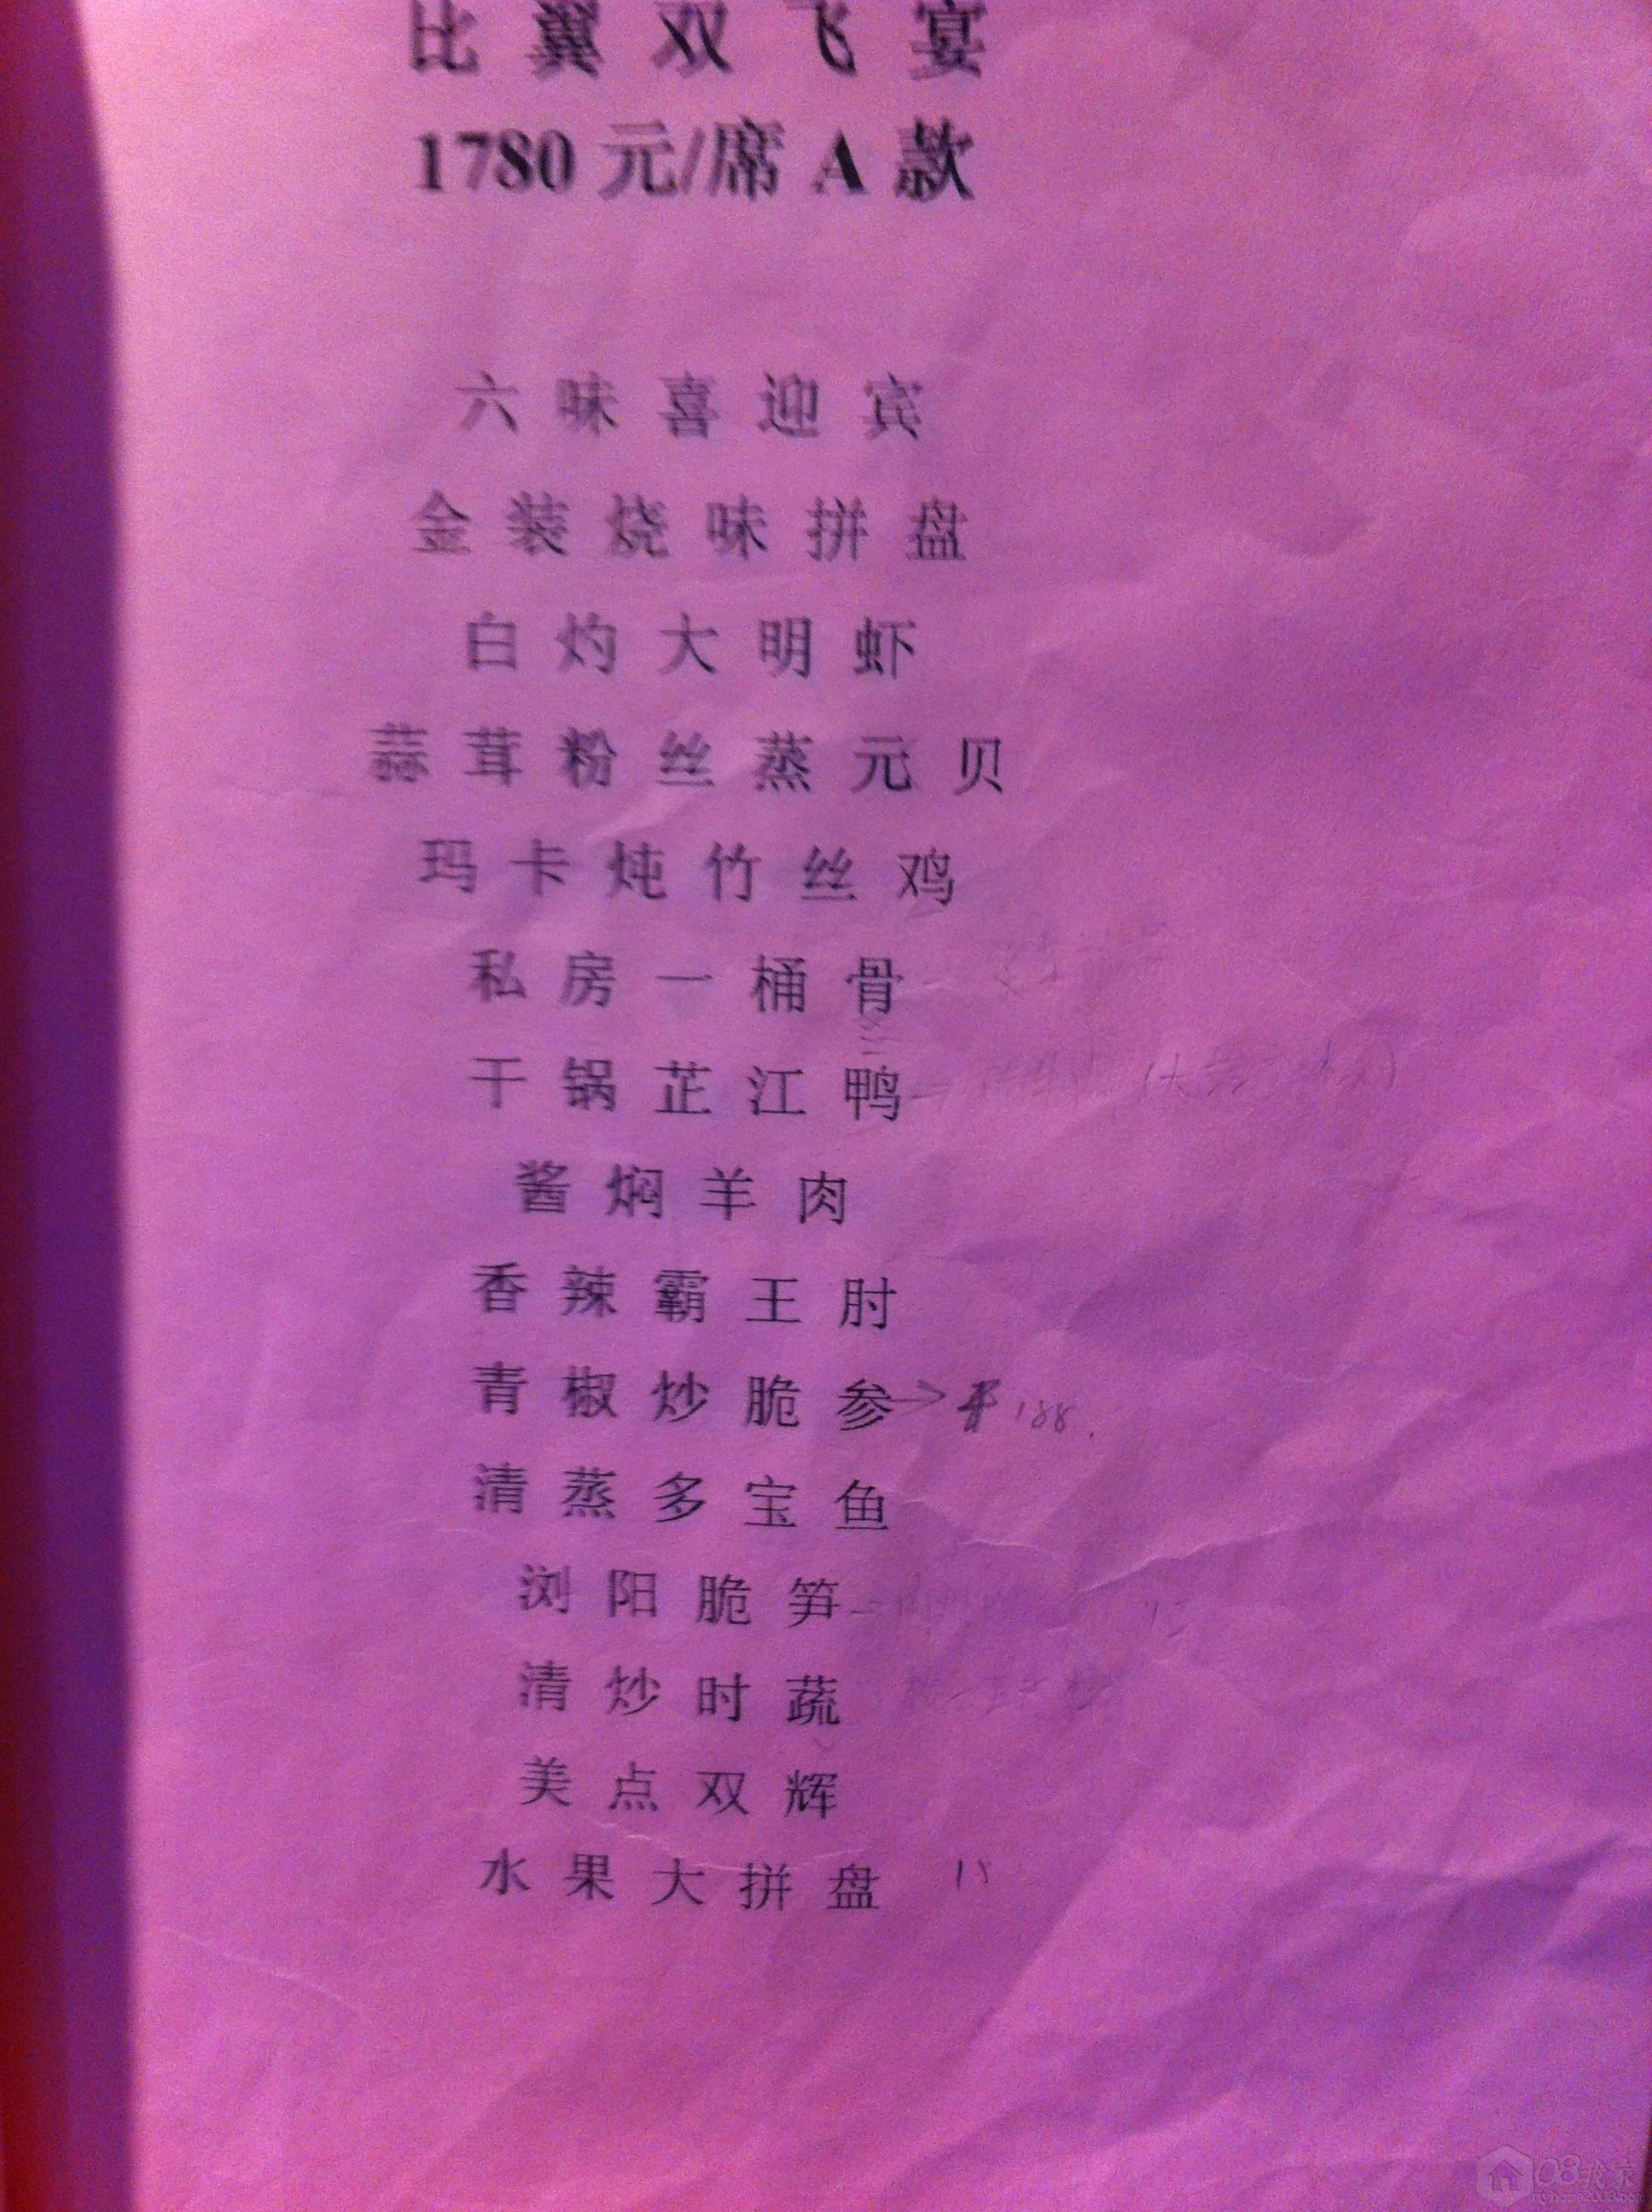 比翼双飞宴
1780元/席A款
六味喜迎宾
金装烧味拼盘
白灼大明虾
蒜茸粉丝蒸元贝
玛卡炖竹丝鸡
私房一桶骨
干锅芷江鸭
酱焖羊肉
香辣霸王肘
青椒炒脆参→ 188.
清蒸多宝鱼
浏阳脆笋
清炒时蔬
美点双辉
水果大拼盘